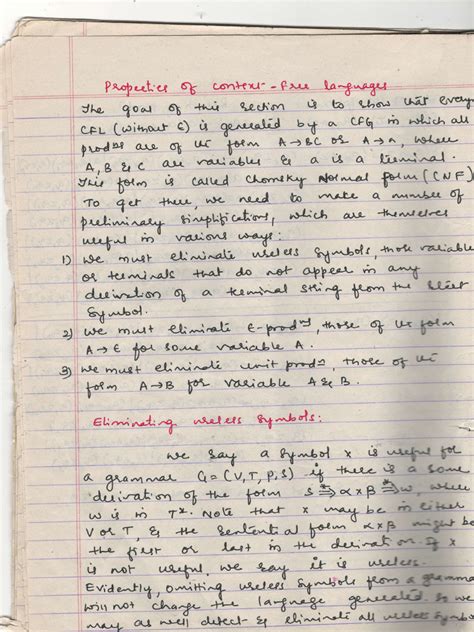 Properties of context-free languages
The goal of this section is to show that every
CFL (without ε) is generated by a CFG in which all
prodns are of the form A→BC or A→a, where
A, B & C are variables & a is a terminal.
This form is called Chomsky Normal form (CNF)
To get there, we need to make a number of
preliminary simplifications, which are themselves
useful in various ways:
1) We must eliminate useless symbols, those variable
or terminals that do not appear in any
derivation of a terminal string from the start
symbol.
2) We must eliminate ε-prodns, those of the form
A→ε for some variable A.
3) We must eliminate unit prodns, those of the
form A→B for variable A & B.
Eliminating useless symbols:
We say a symbol x is useful for
a grammar G=(V,T,P,S) if there is a some
derivation of the form S ⇒* αxβ ⇒* w, where
w is in T*. Note that x may be in either
V or T, & the sentential form αxβ might be
the first or last in the derivation. If x
is not useful, we say it is useless.
Evidently, omitting useless symbols from a grammar
will not change the language generated. So we
may as well detect & eliminate all useless symbols